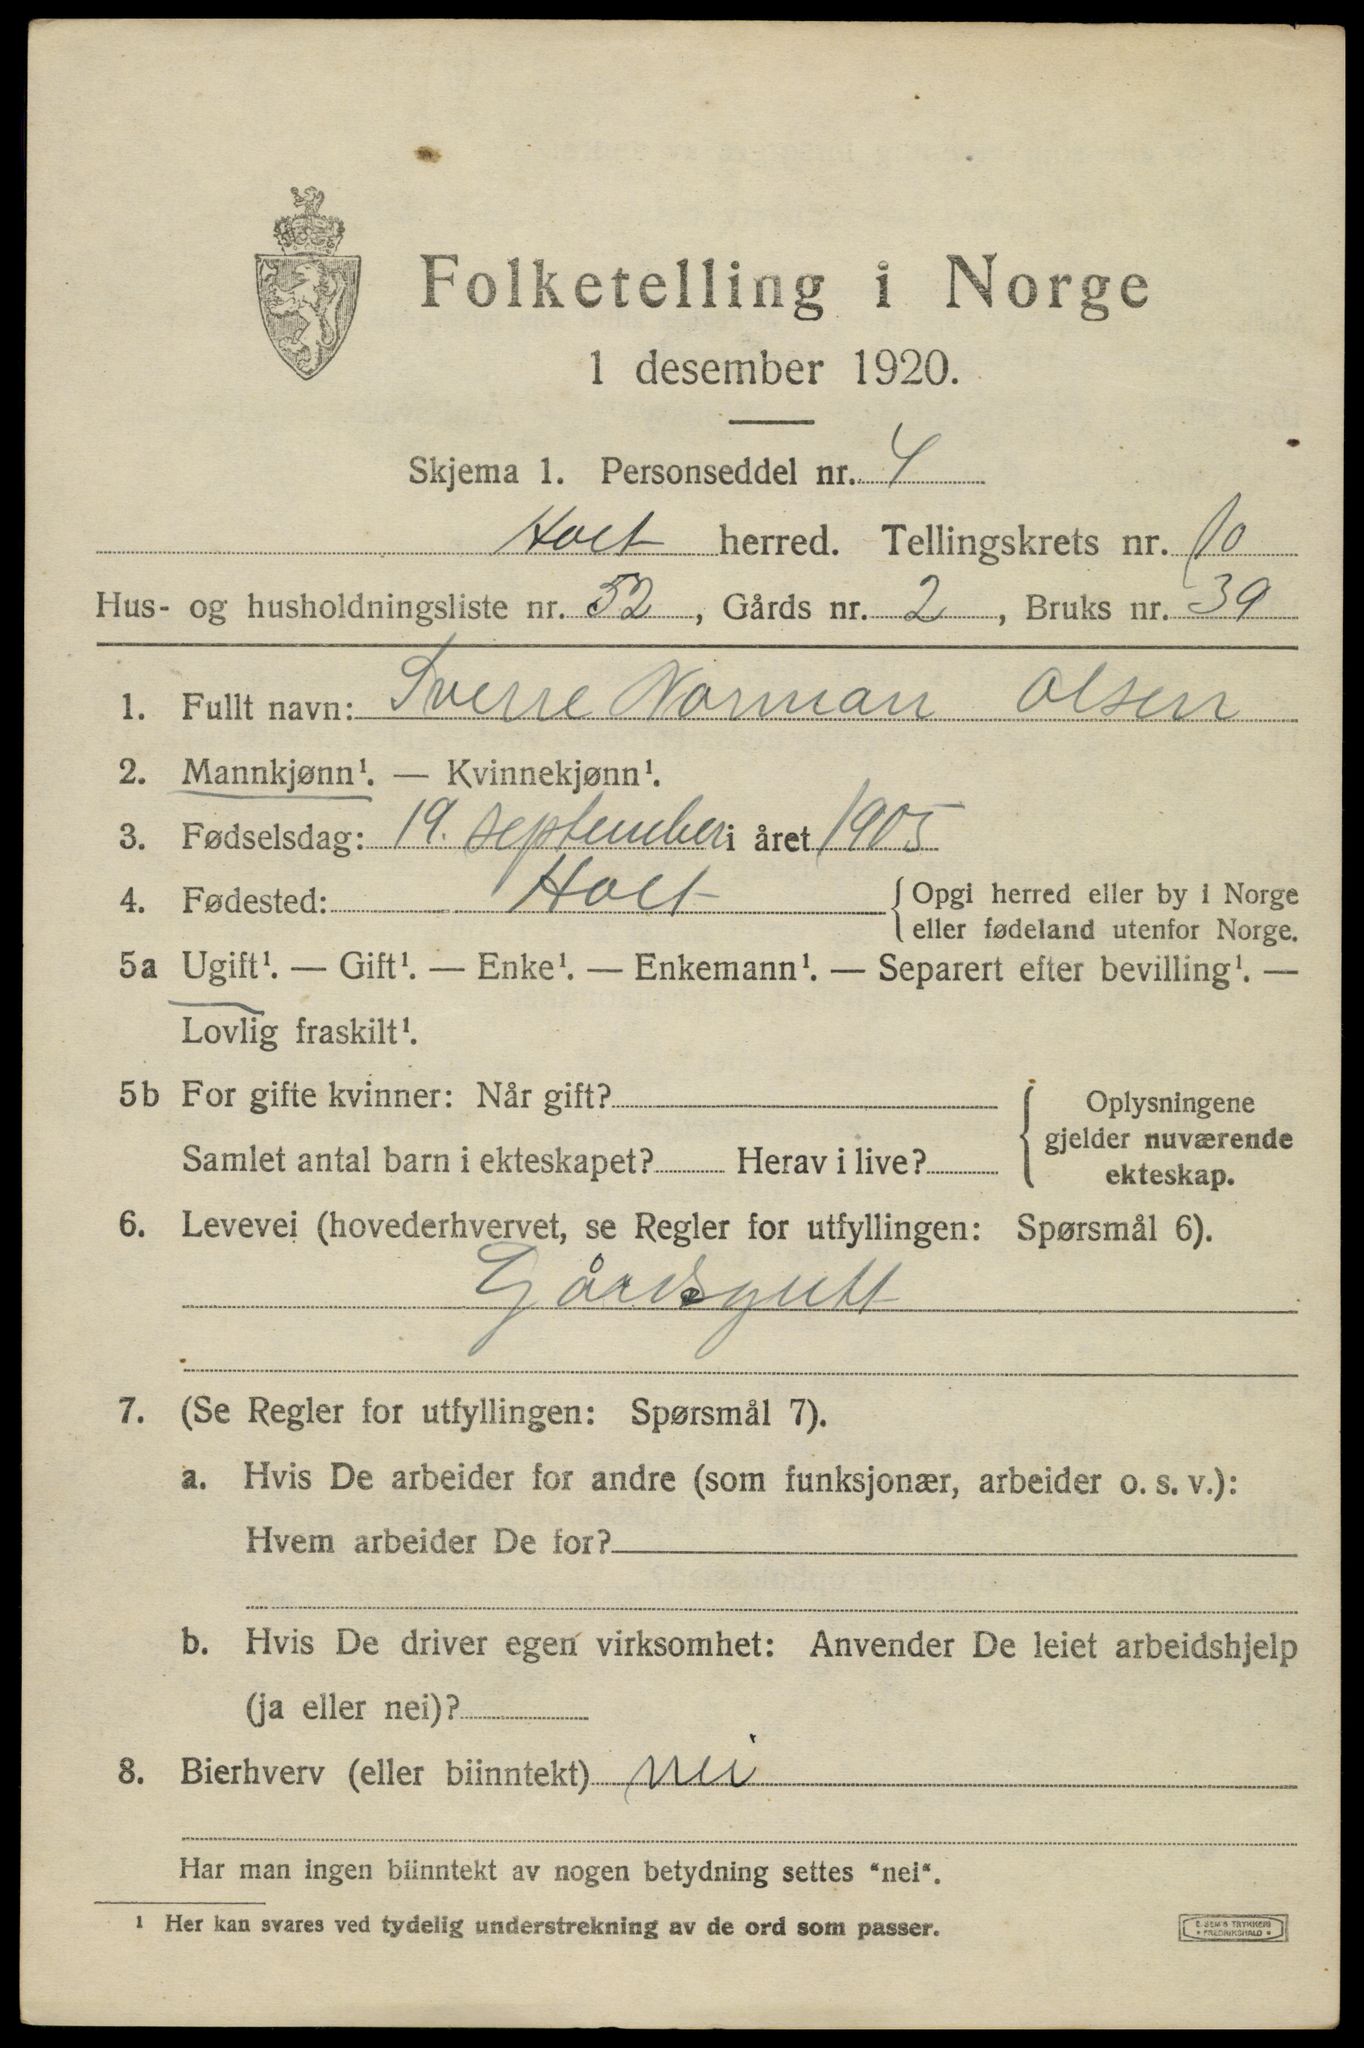 Folketelling i Norge
1 desember 1920.
Skjema 1. Personseddel nr. 4
Holt herred. Tellingskrets nr. 10
Hus- og husholdningsliste nr. 52, Gårds nr. 2, Bruks nr. 39
1. Fullt navn: Sverre Norman Olsen
2. Mannkjønn¹. — Kvinnekjønn¹.
3. Fødselsdag: 19. september i året 1905
4. Fødested: Holt {Opgi herred eller by i Norge
eller fødeland utenfor Norge.
5a Ugift¹. — Gift¹. — Enke¹. — Enkemann¹. — Separert efter bevilling¹. —
Lovlig fraskilt¹.
5b For gifte kvinner: Når gift?
Samlet antal barn i ekteskapet? Herav i live?
{Oplysningene
gjelder nuværende
ekteskap.
6. Levevei (hovederhvervet, se Regler for utfyllingen: Spørsmål 6).
Gårdsgutt
7. (Se Regler for utfyllingen: Spørsmål 7).
a. Hvis De arbeider for andre (som funksjonær, arbeider o. s. v.):
Hvem arbeider De for?
b. Hvis De driver egen virksomhet: Anvender De leiet arbeidshjelp
(ja eller nei)?
8. Bierhverv (eller biinntekt) nei
Har man ingen biinntekt av nogen betydning settes "nei".
¹ Her kan svares ved tydelig understrekning av de ord som passer.
E. SEM'S TRYKKERI
* FREDRIKSHALD *